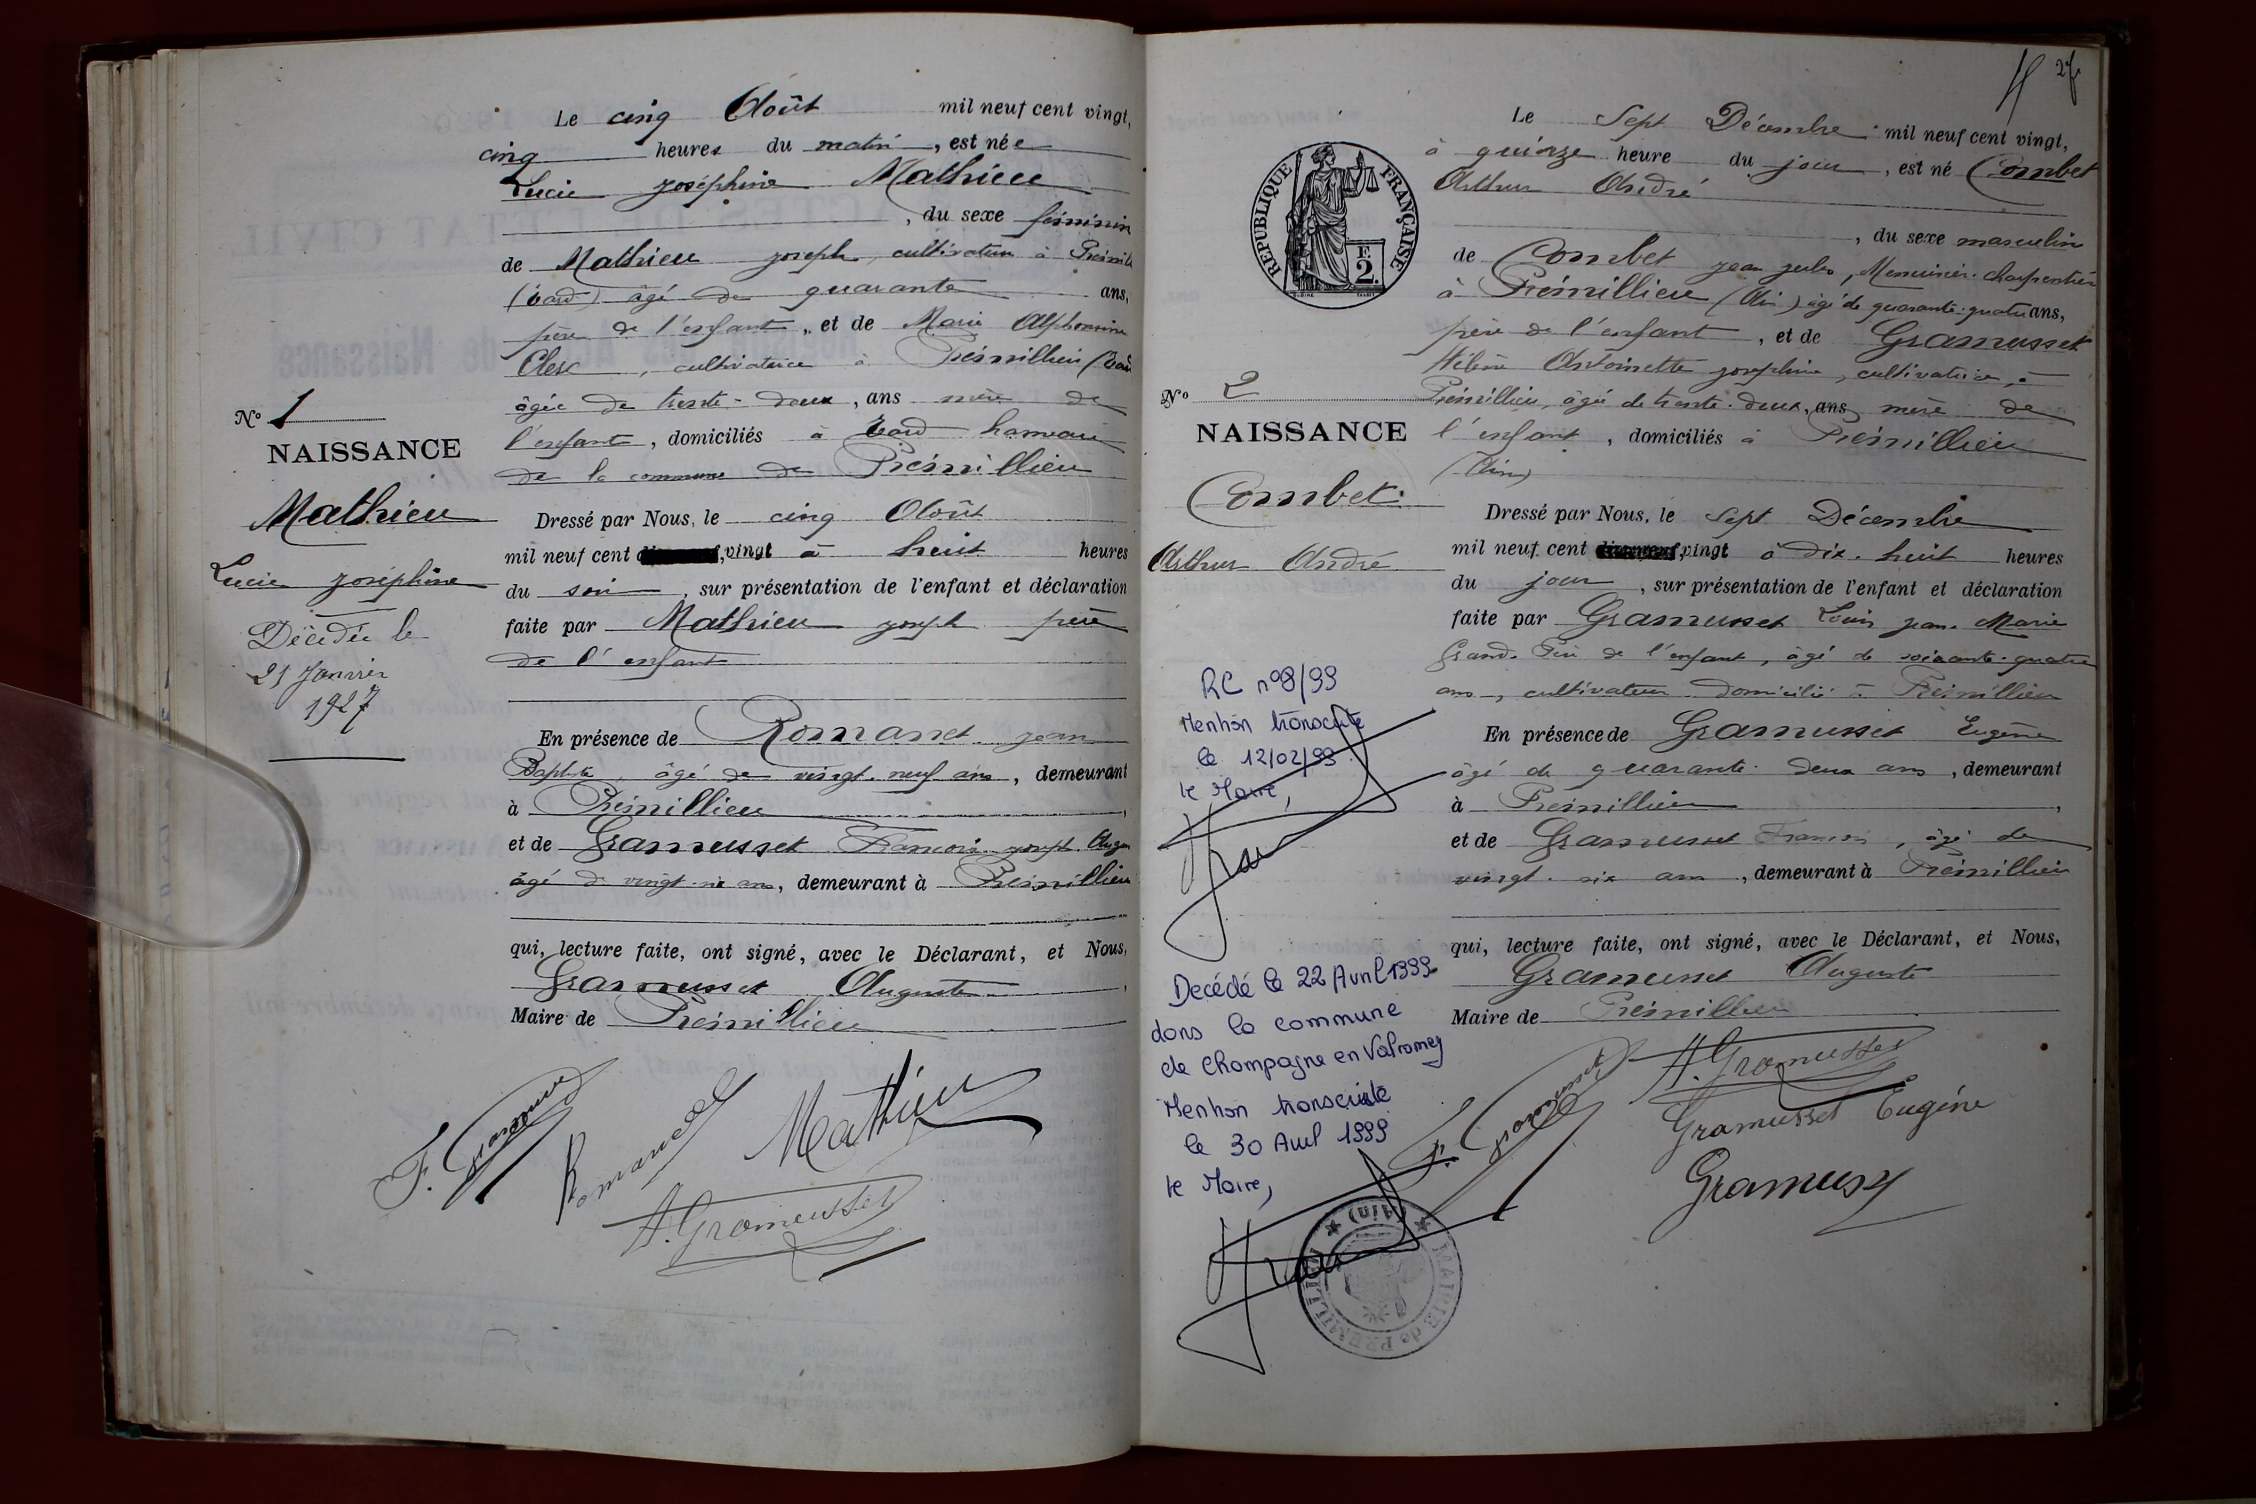 Le cinq Août mil neuf cent vingt,
cinq heures du matin, est née
Lucie Joséphine Mathieu
, du sexe féminin
de Mathieu Joseph, cultivateur à Prémill
âgé de quarante ans,
père de l'enfant, et de Marie Alphonsine
Clerc, cultivatrice à Prémillieu
âgée de trente-deux, ans mère de
l'enfant, domiciliés à hameau
de la commune de Prémillieu
No 1
NAISSANCE
Mathieu
Lucie Joséphine
Décédée le
21 Janvier
1927
Dressé par Nous, le cinq Août
mil neuf cent vingt à huit heures
du soir, sur présentation de l'enfant et déclaration
faite par Mathieu Joseph père
de l'enfant
En présence de Romanet Jean
Baptiste, âgé de vingt-neuf ans, demeurant
à Prémillieu
et de Gramusset François Joseph
âgé de vingt-six ans, demeurant à Prémillieu
qui, lecture faite, ont signé, avec le Déclarant, et Nous,
Gramusset Auguste
Maire de Prémillieu
F. Gramusset
Romanet
Mathieu
A. Gramusset
27
Le Sept Décembre mil neuf cent vingt,
à quinze heure du jour, est né Combet
Arthur André
, du sexe masculin
de Combet Jean Jules, Menuisier-charpentier
à Prémillieu (Ain) âgé de quarante-quatre ans,
père de l'enfant, et de Gramusset
Hélène Antoinette Joséphine, cultivatrice, à
Prémillieu, âgée de trente-deux, ans mère de
l'enfant, domiciliés à Prémillieu
(Ain)
RÉPUBLIQUE FRANÇAISE
E
2.
No 2
NAISSANCE
Combet
Arthur André
Dressé par Nous, le Sept Décembre
mil neuf cent vingt à dix-huit heures
du jour, sur présentation de l'enfant et déclaration
faite par Gramusset Louis Jean-Marie
Grand-Père de l'enfant, âgé de soixante-quatre
ans, cultivateur domicilié à Prémillieu
En présence de Gramusset Eugène
âgé de quarante-deux ans, demeurant
à Prémillieu
et de Gramusset François, âgé de
vingt-six ans, demeurant à Prémillieu
qui, lecture faite, ont signé, avec le Déclarant, et Nous,
Gramusset Auguste
Maire de Prémillieu
RC n°8/99
Mention transcrite
le 12/02/99
le Maire,
Décédé le 22 Avril 1999
dans la commune
de Champagne en Valromey
Mention transcrite
le 30 Avril 1999
le Maire,
MAIRIE de PREMILLIEU (Ain)
F. Gramusset
A. Gramusset
Gramusset Eugène
Gramusset